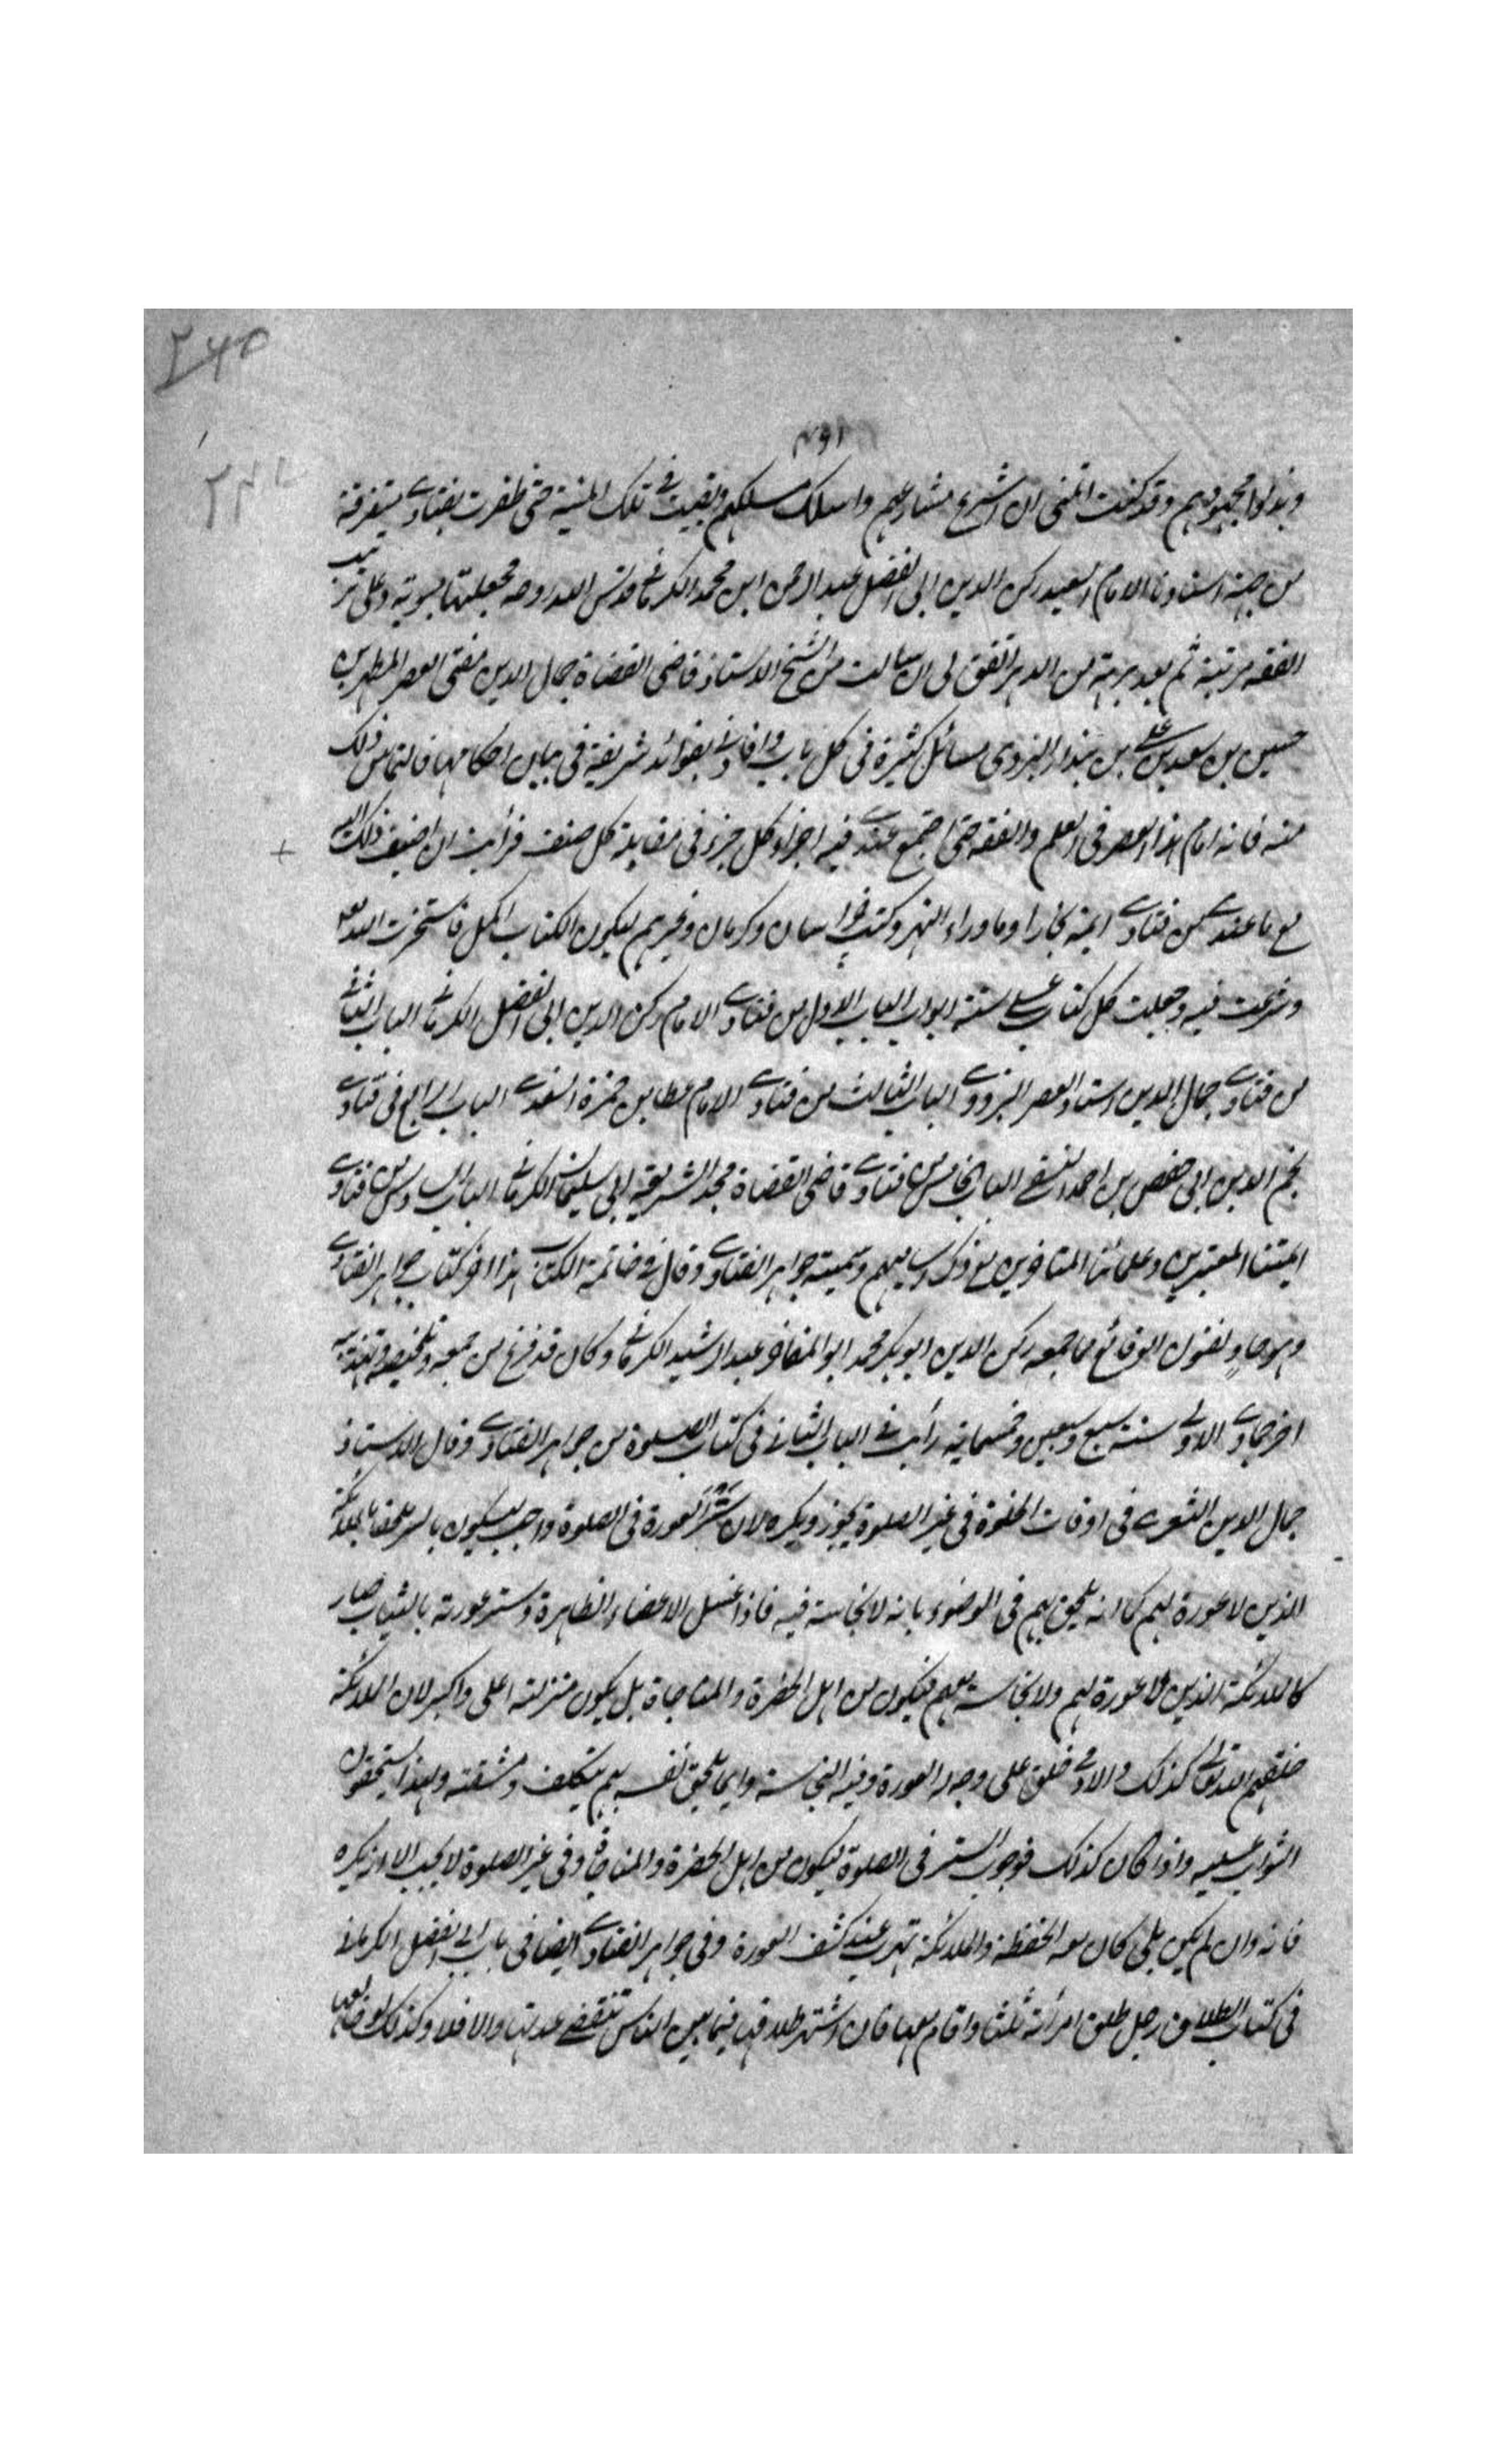 وبذلوا مجهودهم وقد كنت اتمنى ان اشرع مشارعهم واسلك مسلكهم وبقيت في تلك المنية حتى ظفرت بفتاوى متفرقة
من جهة استاذنا الامام السعيد ركن الدين ابى الفضل عبد الرحمن ابن محمد الكرماني قدس الله روحه فجعلتها مبوبة وعلى ترتيب
الفقه مرتبة ثم بعد برهة من الدهر اتفق لى ان سالت من الشيخ الاستاذ قاضى القضاة جمال الدين مفتى العصر المطهر بن
حسين بن سعد بن على بن بندار اليزدى مسائل كثيرة فى كل باب وافادنى بفوائد شريفة فى بيان احكامها فالتمس ذلك
منه فانه امام هذا العصر فى العلم والفقه حتى اجتمع عندى فيه اجزاء كل جزء فى مقابلة كل صنف فرأيت ان اضيف ذلك اليه
مع ما عندى من فتاوى ايمة بخارا وماوراء النهر وكتب خراسان وكرمان وغيرهم ليكون الكتاب اكمل فاستخرت الله تعه
وشرعت فيه وجعلت كل كتاب على ستة ابواب الباب الاول من فتاوى الامام ركن الدين ابى الفضل الكرماني الباب الثاني
من فتاوى جمال الدين استاد العصر اليزدوى الباب الثالث من فتاوى الامام عطا بن حمزة السغدى الباب الرابع فى فتاوى
نجم الدين ابى حفص بن احمد النسفى الباب الخامس من فتاوى قاضى القضاة مجد الشريعة ابى سليمان الكرماني الباب السادس من فتاوى
ايمتنا المعتبرين وعلمائنا المتاخرين مع ذكر اساميهم وسميته جواهر الفتاوى وقال فى خاتمة الكتاب هذا اخر كتاب جواهر الفتاوى
وهو حاوٍ لفنون الوقائع مما جمعه ركن الدين ابو بكر محمد ابو المفاخر عبد الرشيد الكرماني وكان قد فرغ من جمعه وتلخيصه وتهذيبه
اخر جمادى الاولى سنة سبع وسبعين وخمسماية رأيت فى الباب الثانى فى كتاب الصلوة من جواهر الفتاوى وقال الاستاذ
جمال الدين التعرى فى اوقات الخلوة فى غير الصلوة يجوز ويكره لان ستر العورة فى الصلوة واجب ليكون بالستر ملحقا بالملائكة
الذين لا عورة لهم كما انه يلحق بهم فى الوضوء بانه لا نجاسة فيه فاذا غسل الاعضاء الظاهرة وستر عورته بالثياب صار
كالملائكة الذين لا عورة لهم ولا نجاسة معهم فيكون من اهل الحضرة والمناجاة بل يكون منزلته اعلى واكبر لان الملائكة
خلقهم الله تعالى كذلك والادمى خلق على وجه العورة وفيه النجاسة وانما يلحق نفسه بهم بتكلف ومشقته ولهذا يستحقون
الثواب عليه واذا كان كذلك فوجوب الستر فى الصلوة ليكون من اهل الحضرة والمناجاة وفى غير الصلوة لا يجب الا انه يكره
فانه وان لم يكن بلى كان معه الحفظة والملائكة تهرب عند كشف العورة وفى جواهر الفتاوى ايضا فى باب ابى الفضل الكرماني
فى كتاب الطلاق رجل طلق امرأته ثلثا واقام معها فان اشتهر طلاقها فيما بين الناس تنقضى عدتها والا فلا وكذلك لو خالعها